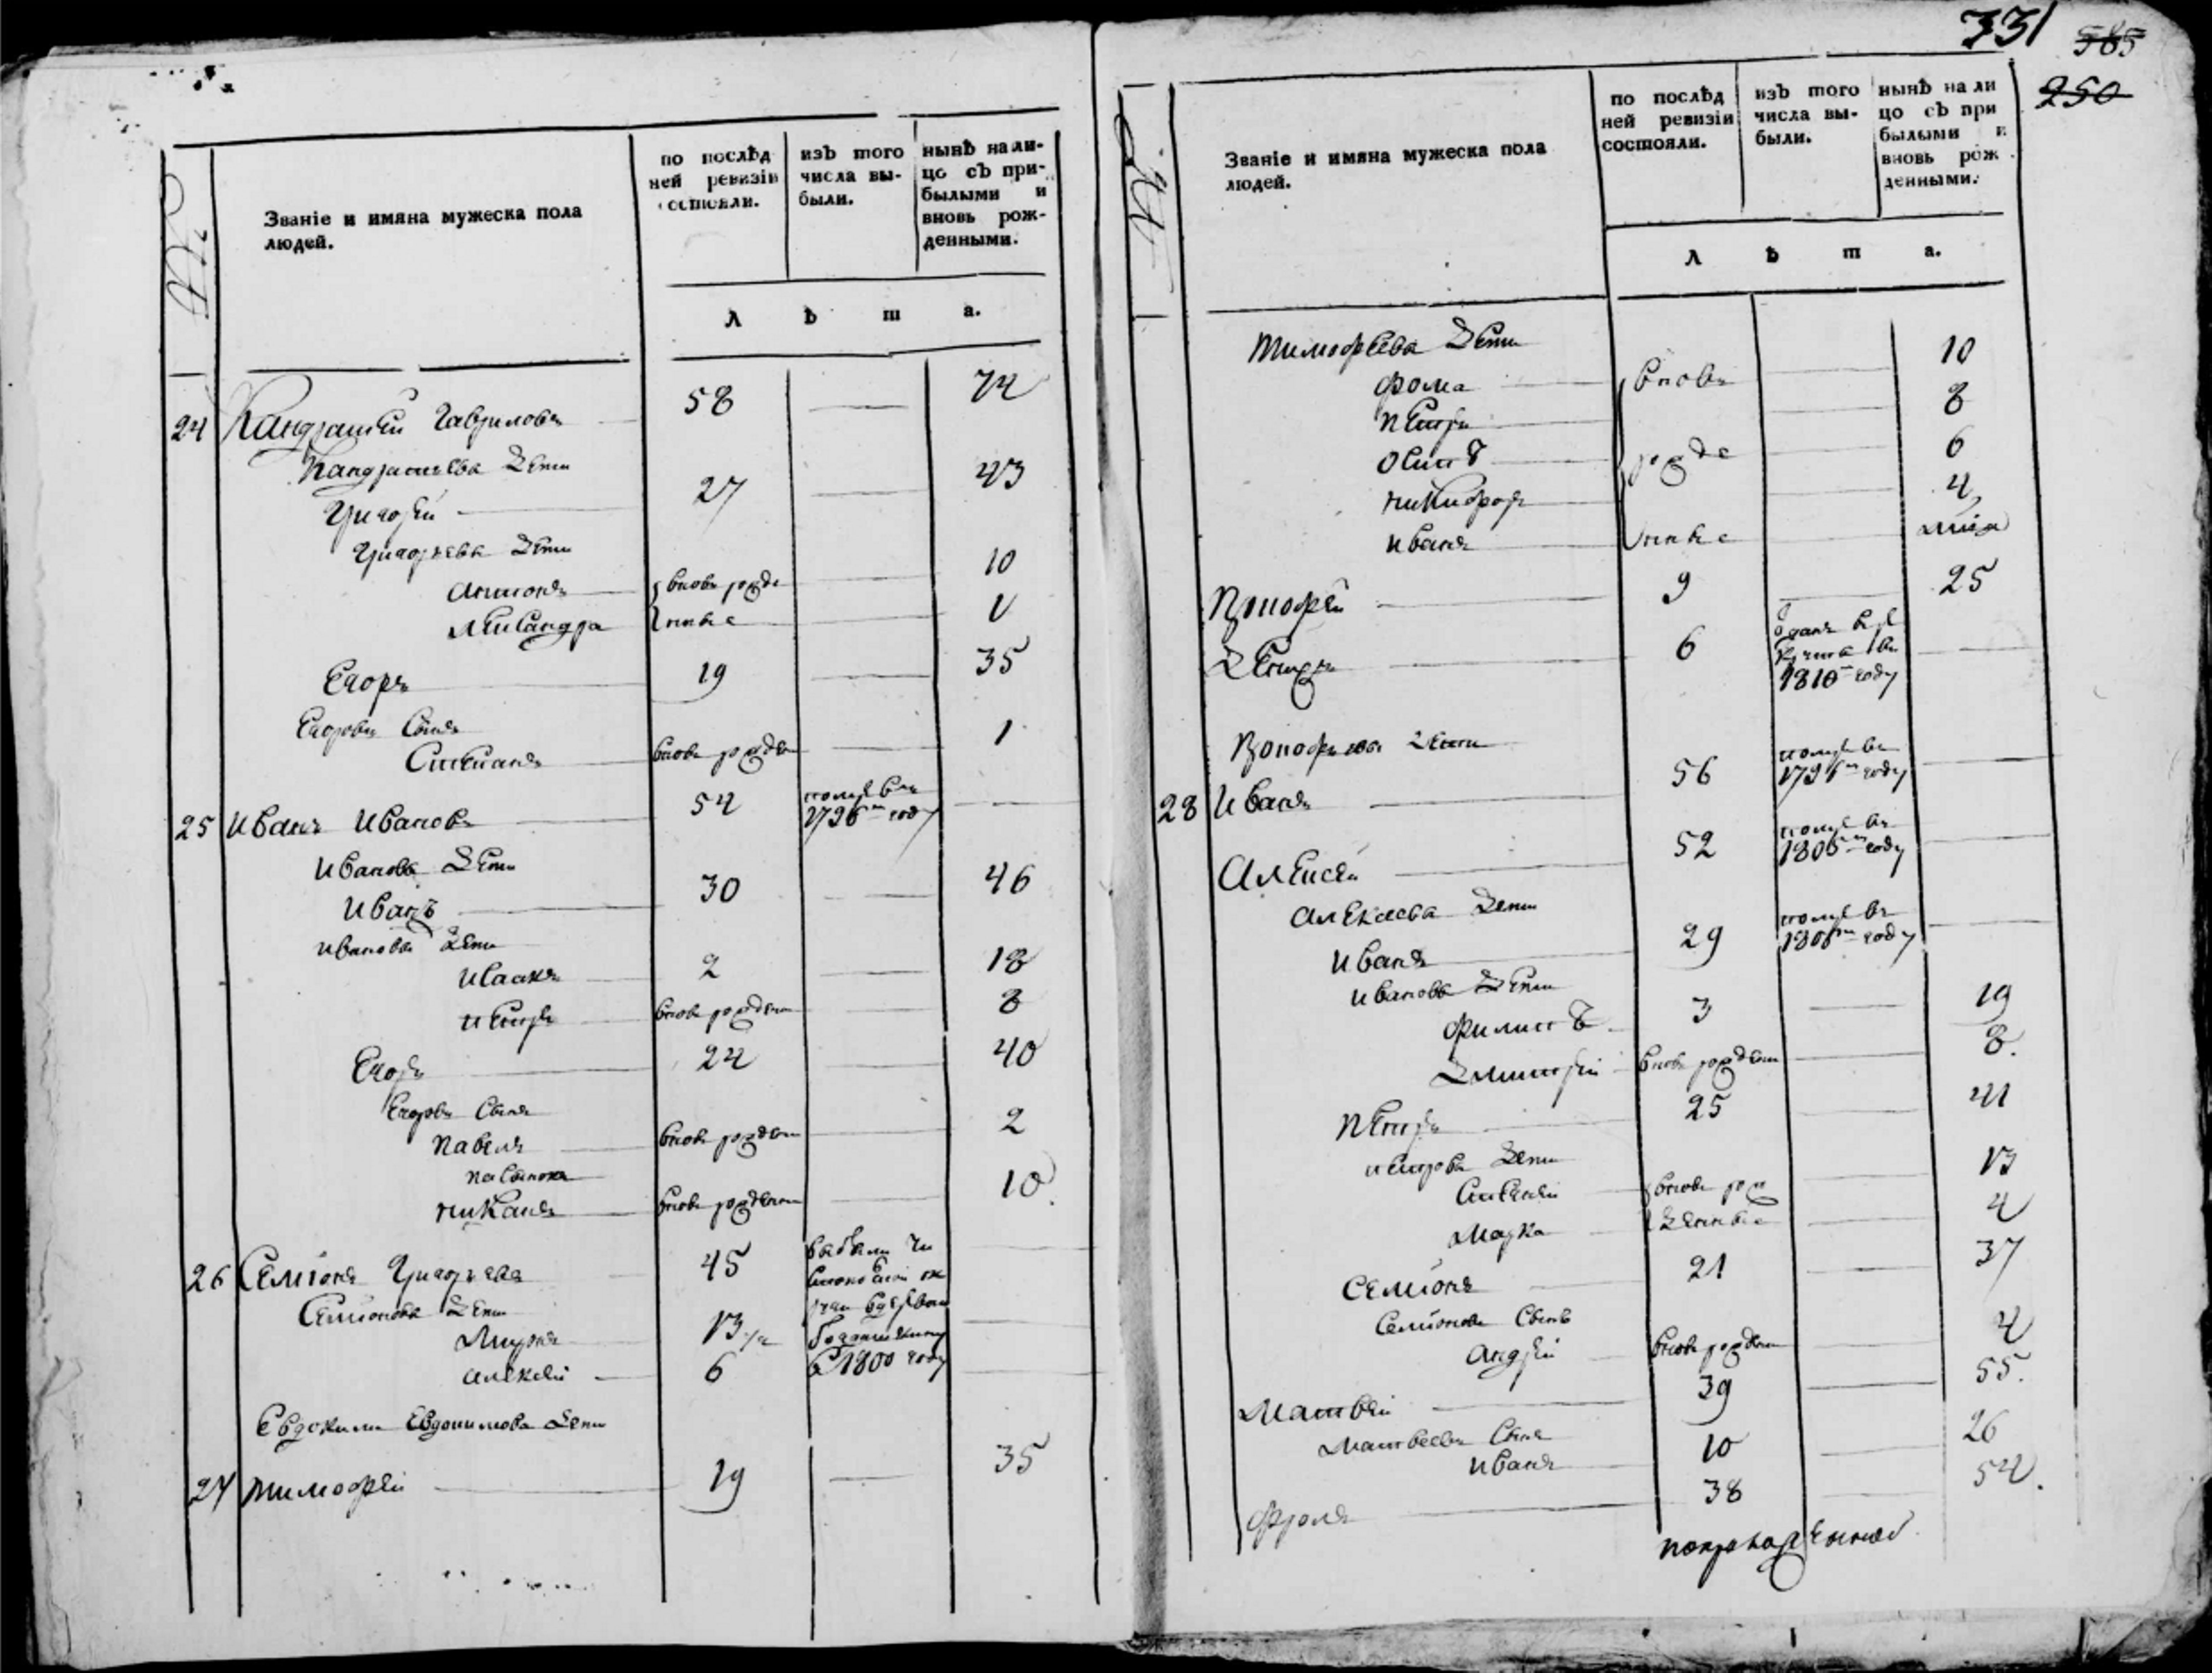 Званіе и имяна мужеска пола людей.
по послѣдней ревизіи состояли.
изъ того числа выбыли.
нынѣ налицо съ прибылыми и вновь рожденными.
л ѣ т а.
24 Кандратей Гавриловъ 58 74
Кандратьева Дети
Григорей 27 43
Григорьева Дети
Антонъ вновь рожде 10
Александра нные 1
Егоръ 19 35
Егоровъ Сынъ
Степанъ вновь рожден 1
25 Иванъ Ивановъ 54 году
Иванова Дети
Иванъ 30 46
Иванова Дети
Исаакъ 2 18
Петръ вновь рожден 8
Егоръ 24 40
Егоровъ Сынъ
Павелъ вновь рожден 2
вновь рожден 10
26 Семіонъ Григорьевъ 45 выбыли
Семіонова Дети
Миронъ 13
Алексей 6 в 1800 году
Евдокима Евдокимова Дети
27 Тимофей 19 35
331
585
250
Званіе и имяна мужеска пола людей.
по послѣдней ревизіи состояли.
изъ того числа выбыли.
нынѣ на лицо съ прибылыми и вновь рожденными.
л ѣ т а.
Тимофеева Дети
Фома вновь 10
Петръ 8
Осипъ рожде 6
Никифоръ 4
Иванъ нные
9 25
6 отданъ в рекруты въ 1810 году
Дети
28 Иванъ 56 году
Алексей 52 году
Алексеева Дети
Иванъ 29 году
Иванова Дети
Филипъ 3 19
Дмитрей вновь рожден 8.
Петръ 25 41
Петрова Дети
вновь рож 13
Марка денные 4
Семіонъ 21 37
Семіоновъ Сынъ
Андрей вновь рожден 4
Матвей 39 55.
Матвеевъ Сынъ
Иванъ 10 26
Фролъ 38 54.